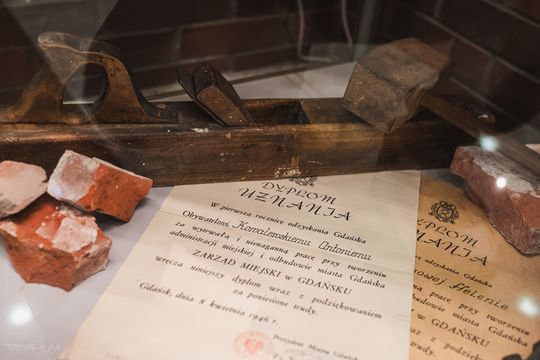 DYPLOM
UZNANIA
W pierwszą rocznicę odzyskania Gdańska
Obywatelowi Kowalewskiemu Antoniemu
za wytrwałą i nienaganną pracę przy tworzeniu
administracji miejskiej i odbudowie miasta Gdańska
ZARZĄD MIEJSKI w GDAŃSKU
wręcza niniejszy dyplom wraz z podziękowaniem
za poniesione trudy.
Gdańsk, dnia 8 kwietnia 1946 r.
Prezydent Miasta Gdańska
DYPLOM
NANIA
odzyskania Gdańska
Helenie
pracę przy tworzeniu
odbudowie miasta Gdańska
w GDAŃSKU
wraz z podziękowaniem
trudy.